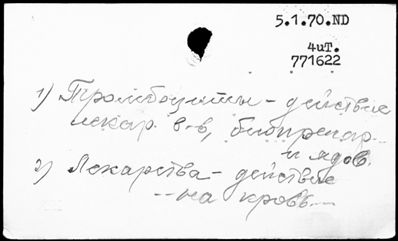 5.1.70.ND
4иТ.
771622
1) Тромбоциты - действие
лекар. в-в, биопрепар.
и ядов.
2) Лекарства - действие
на кровь